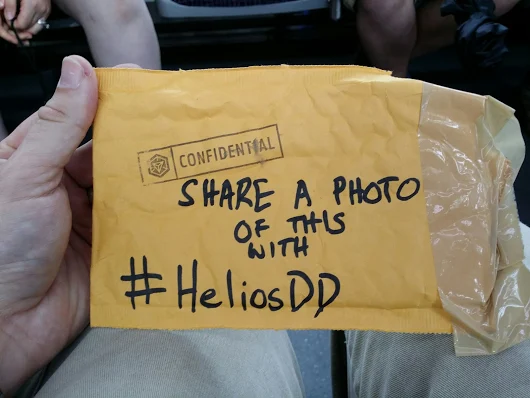 CONFIDENTIAL
SHARE A PHOTO
OF THIS
WITH
#HeliosDD